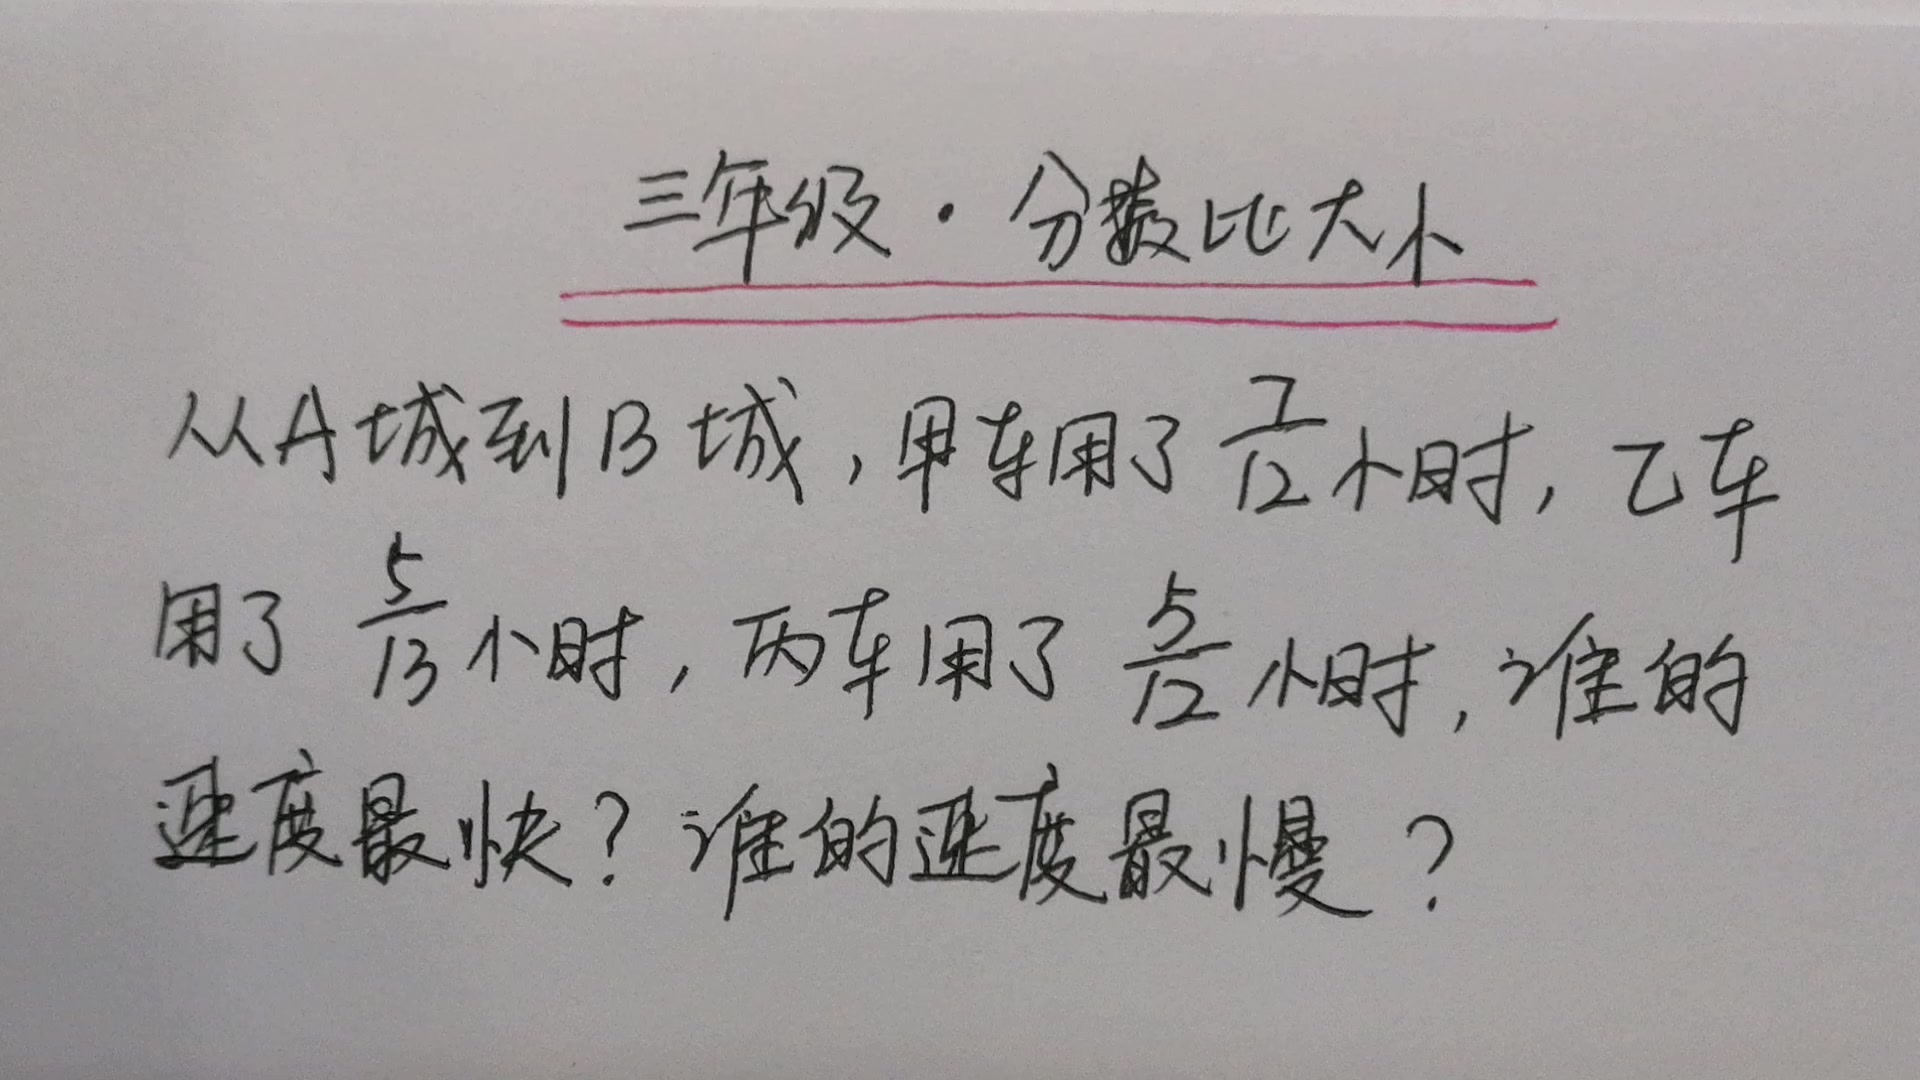 三年级·分数比大小
从A城到B城,甲车用了7/12小时,乙车
用了5/13小时,丙车用了5/12小时,谁的
速度最快?谁的速度最慢?